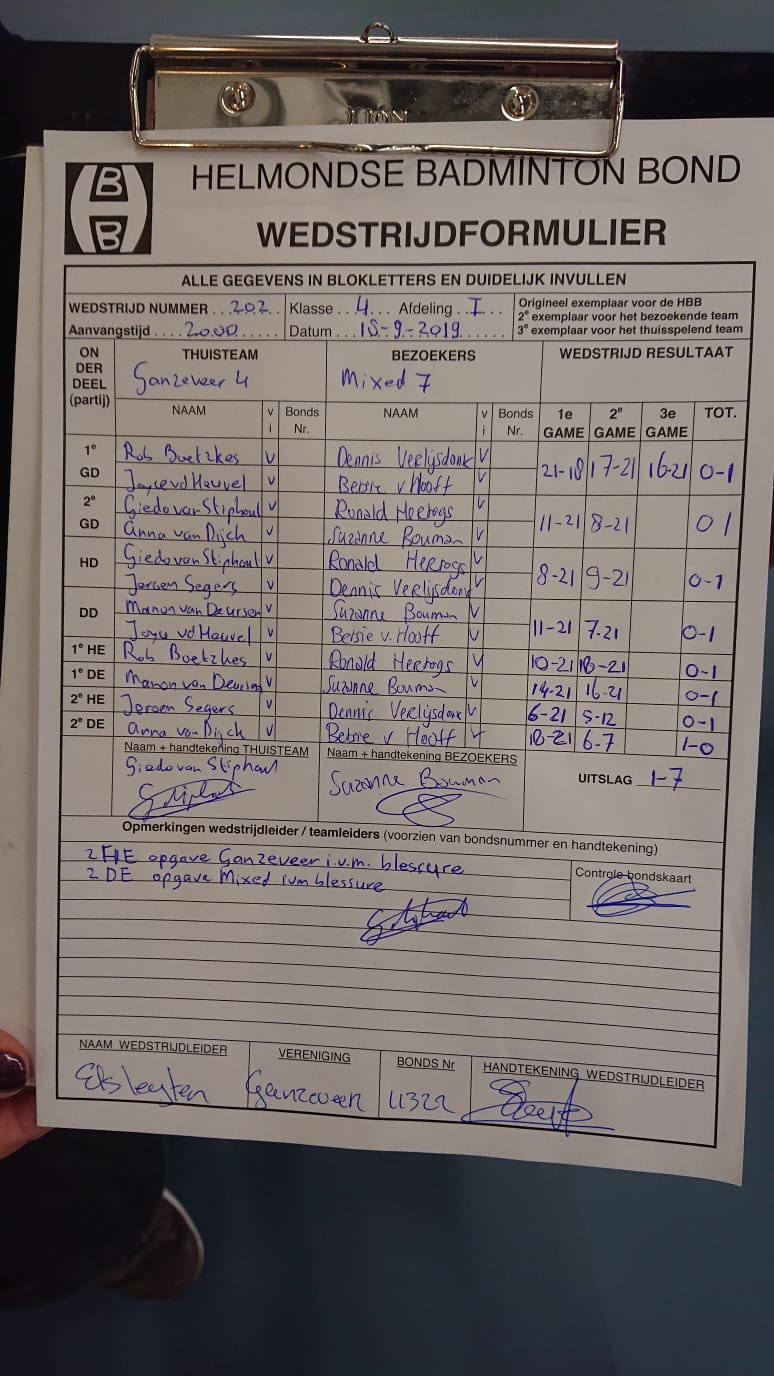 LION
HELMONDSE BADMINTON BOND
WEDSTRIJDFORMULIER
B
B
ALLE GEGEVENS IN BLOKLETTERS EN DUIDELIJK INVULLEN
WEDSTRIJD NUMMER ...202.. Klasse .. 4... Afdeling ..I...
Aanvangstijd ....20.00..... Datum ...18-9-2019......
Origineel exemplaar voor de HBB
2e exemplaar voor het bezoekende team
3e exemplaar voor het thuisspelend team
ON DER DEEL (partij) THUISTEAM BEZOEKERS WEDSTRIJD RESULTAAT
Ganzeveer 4 Mixed 7
NAAM v i Bonds Nr. NAAM v i Bonds Nr. 1e GAME 2e GAME 3e GAME TOT.
1e GD Rob Boetzkes V Dennis Verlijsdonk V 21-18 17-21 16-21 0-1
Joyce vd Heuvel V Betsie v Hooff V
2e GD Giedo van Stiphout V Ronald Hertogs V 11-21 8-21 0 1
Anna van Dijck V Suzanne Bouman V
HD Giedo van Stiphout V Ronald Hertogs V 8-21 9-21 0-1
Jeroen Segers V Dennis Verlijsdonk V
DD Manon van Deursen V Suzanne Bouman V 11-21 7-21 0-1
Joyce vd Heuvel V Betsie v. Hooff V
1e HE Rob Boetzkes V Ronald Hertogs V 10-21 18-21 0-1
1e DE Manon van Deursen V Suzanne Bouman V 14-21 16-21 0-1
2e HE Jeroen Segers V Dennis Verlijsdonk V 6-21 5-12 0-1
2e DE Anna van Dijck V Betsie v Hooff V 18-21 6-7 1-0
Naam + handtekening THUISTEAM Naam + handtekening BEZOEKERS
Giedo van Stiphout Suzanne Bouman
UITSLAG 1-7
Opmerkingen wedstrijdleider / teamleiders (voorzien van bondsnummer en handtekening)
2 HE opgave Ganzeveer i.v.m. blessure
2 DE opgave Mixed ivm blessure
Controle bondskaart
NAAM WEDSTRIJDLEIDER VERENIGING BONDS Nr HANDTEKENING WEDSTRIJDLEIDER
Ganzeveer 4322